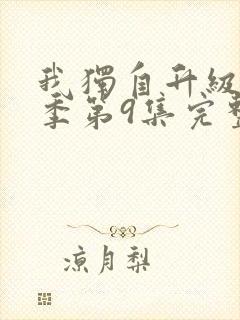 我獨自升級
季第9集完整
涼月梨